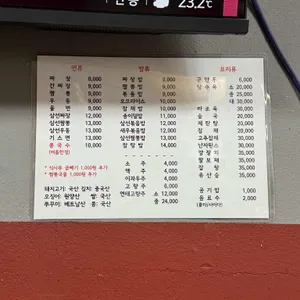 23.2℃
면류
짜장 6,000
간짜장 8,000
짬뽕 8,000
우동 8,000
울면 9,000
삼선짜장 10,000
삼선짬뽕 12,000
삼선우동 13,000
기스면 13,000
콩국수 10,000
(여름한정)
* 식사류 곱빼기 1,000원 추가
* 짬뽕국물 1,000원 추가
돼지고기: 국산 김치: 중국산
오징어: 원양산 쌀: 국산
쭈꾸미: 베트남산 콩: 국산
밥류
짜장밥 8,000
짬뽕밥 9,000
볶음밥 8,000
오므라이스 10,000
잡채밥 10,000
송이덮밥 12,000
삼선볶음밥 12,000
새우볶음밥 12,000
삼선짬뽕밥 13,000
잡탕밥 14,000
소주 4,000
맥주 4,000
이과두주 4,000
고량주 6,000
연태고량주 소 12,000
중 24,000
요리류
군만두 6,000
탕수육 소 20,000
중 25,000
대 30,000
라조육 30,000
술국 20,000
계란탕 20,000
잡채 20,000
고추잡채 30,000
난자완스 30,000
깐풍기 30,000
팔보채 35,000
잡탕 35,000
유산슬 35,000
공기밥 1,000
음료수 2,000